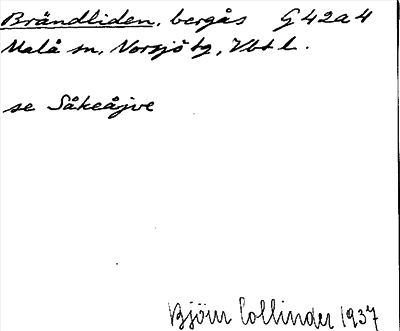 Brändliden, bergås G42a4
Malå sn, Norsjö tg, Vbt l.
se Såkeåjve
Björn Collinder 1937